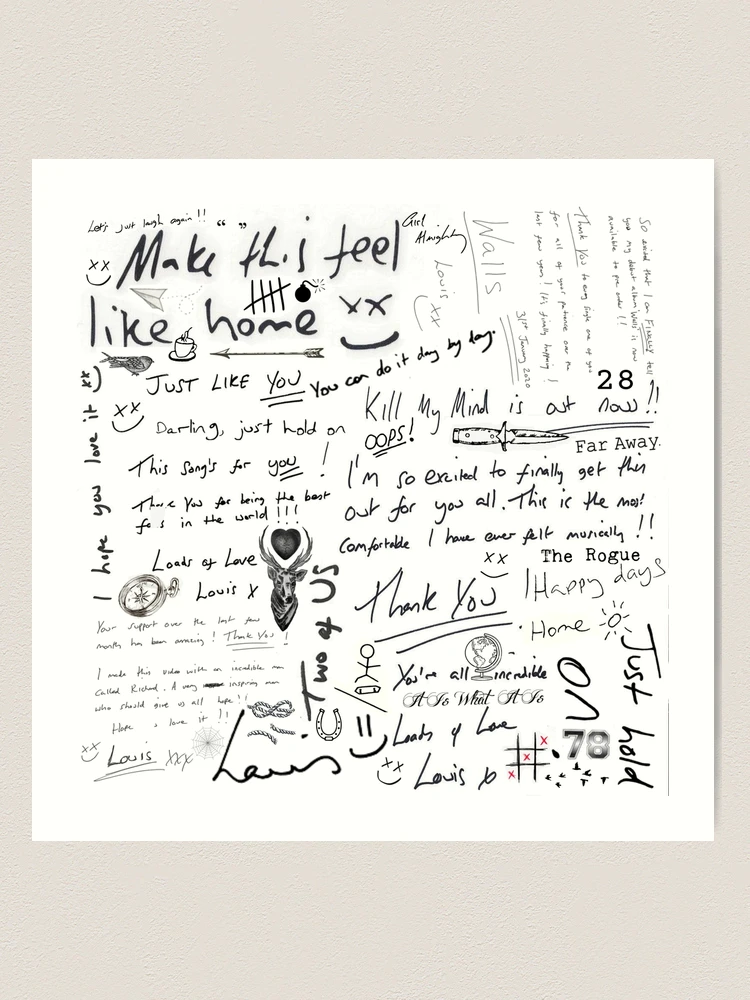 Let's just laugh again!! “ ”
Make this feel
like home
Girl
Almighty
Walls
Louis
xx
31st January 2020
Thank you to every single one of you
for all of your patience over the
last few years! It's finally happening!
So excited that I can FINALLY tell
you my debut album Walls is now
available to pre order!!
28
JUST LIKE YOU
You can do it day by day.
I hope you love it xx
Darling, just hold on
Kill My Mind is out now!!
OOPS!
Far Away
This song's for you!
Thank You for being the best
fa s in the world!!!
I'm so excited to finally get this
out for you all. This is the most
comfortable I have ever felt musically!!
xx
The Rogue
Loads of Love
Louis X
Thank You
Happy days
Home
Your support over the last few
months has been amazing! Thank You!
I made this video with an incredible man
called Richard. A very inspiring man
who should give us all hope!!
Hope u love it!!
Louis xxx
Two of US
Louis
You're all incredible
It Is What It Is
Loads of Love
Louis x
Just hold
on
78